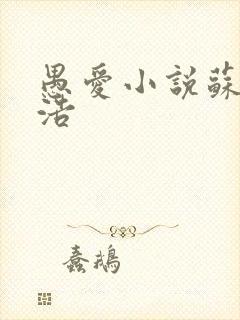 愚愛小説蘇
活
蠢鵝